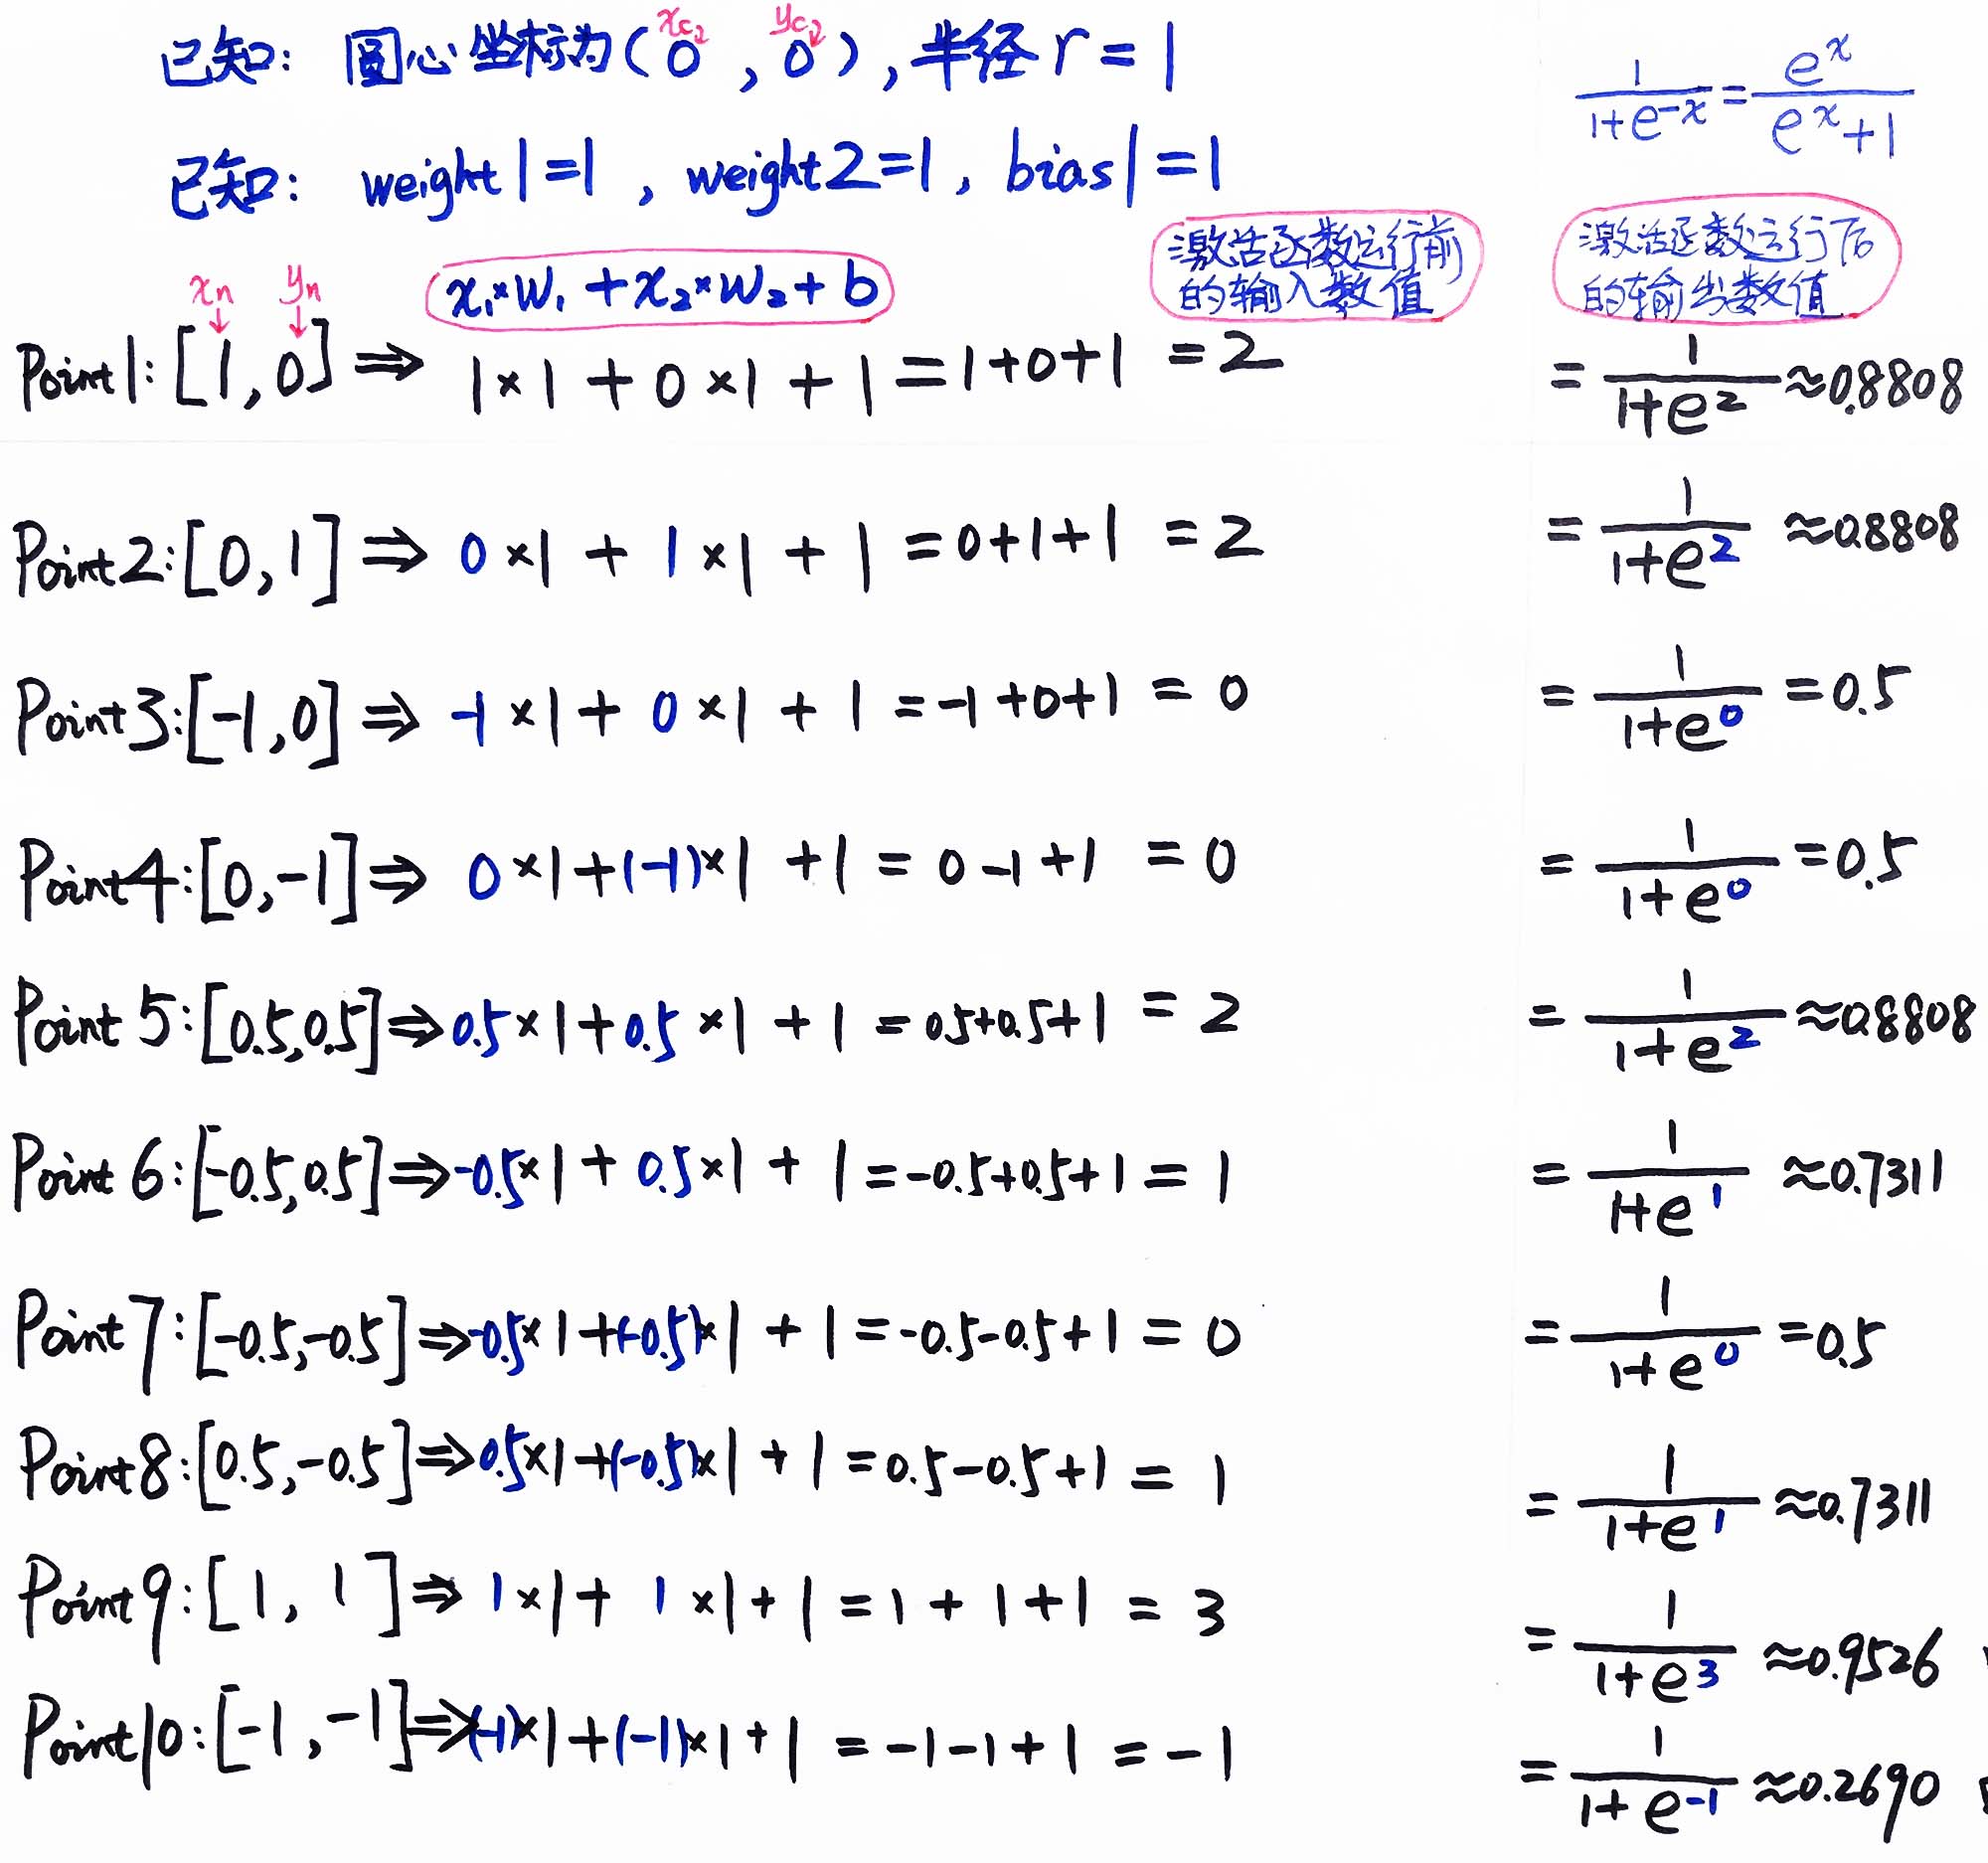 已知: 圆心坐标为(0, 0), 半径 r = 1
xc yc
1/(1+e^-x) = e^x/(e^x+1)
已知: weight1=1, weight2=1, bias1=1
激活函数运行前的输入数值
激活函数运行后的输出数值
xn yn
x₁×W₁+x₂×W₂+b
Point1: [1, 0] ⇒ 1×1+0×1+1=1+0+1 =2 = 1/(1+e^2) ≈0.8808
Point2: [0, 1] ⇒ 0×1+1×1+1=0+1+1 =2 = 1/(1+e^2) ≈0.8808
Point3: [-1, 0] ⇒ -1×1+0×1+1=-1+0+1 =0 = 1/(1+e^0) =0.5
Point4: [0, -1] ⇒ 0×1+(-1)×1+1=0-1+1 =0 = 1/(1+e^0) =0.5
Point5: [0.5, 0.5] ⇒ 0.5×1+0.5×1+1=0.5+0.5+1 =2 = 1/(1+e^2) ≈0.8808
Point6: [-0.5, 0.5] ⇒ -0.5×1+0.5×1+1=-0.5+0.5+1=1 = 1/(1+e^1) ≈0.7311
Point7: [-0.5, -0.5] ⇒ -0.5×1+(-0.5)×1+1=-0.5-0.5+1=0 = 1/(1+e^0) =0.5
Point8: [0.5, -0.5] ⇒ 0.5×1+(-0.5)×1+1=0.5-0.5+1=1 = 1/(1+e^1) ≈0.7311
Point9: [1, 1] ⇒ 1×1+1×1+1=1+1+1=3 = 1/(1+e^3) ≈0.9526
Point10: [-1, -1] ⇒ (-1)×1+(-1)×1+1=-1-1+1=-1 = 1/(1+e^-1) ≈0.2690